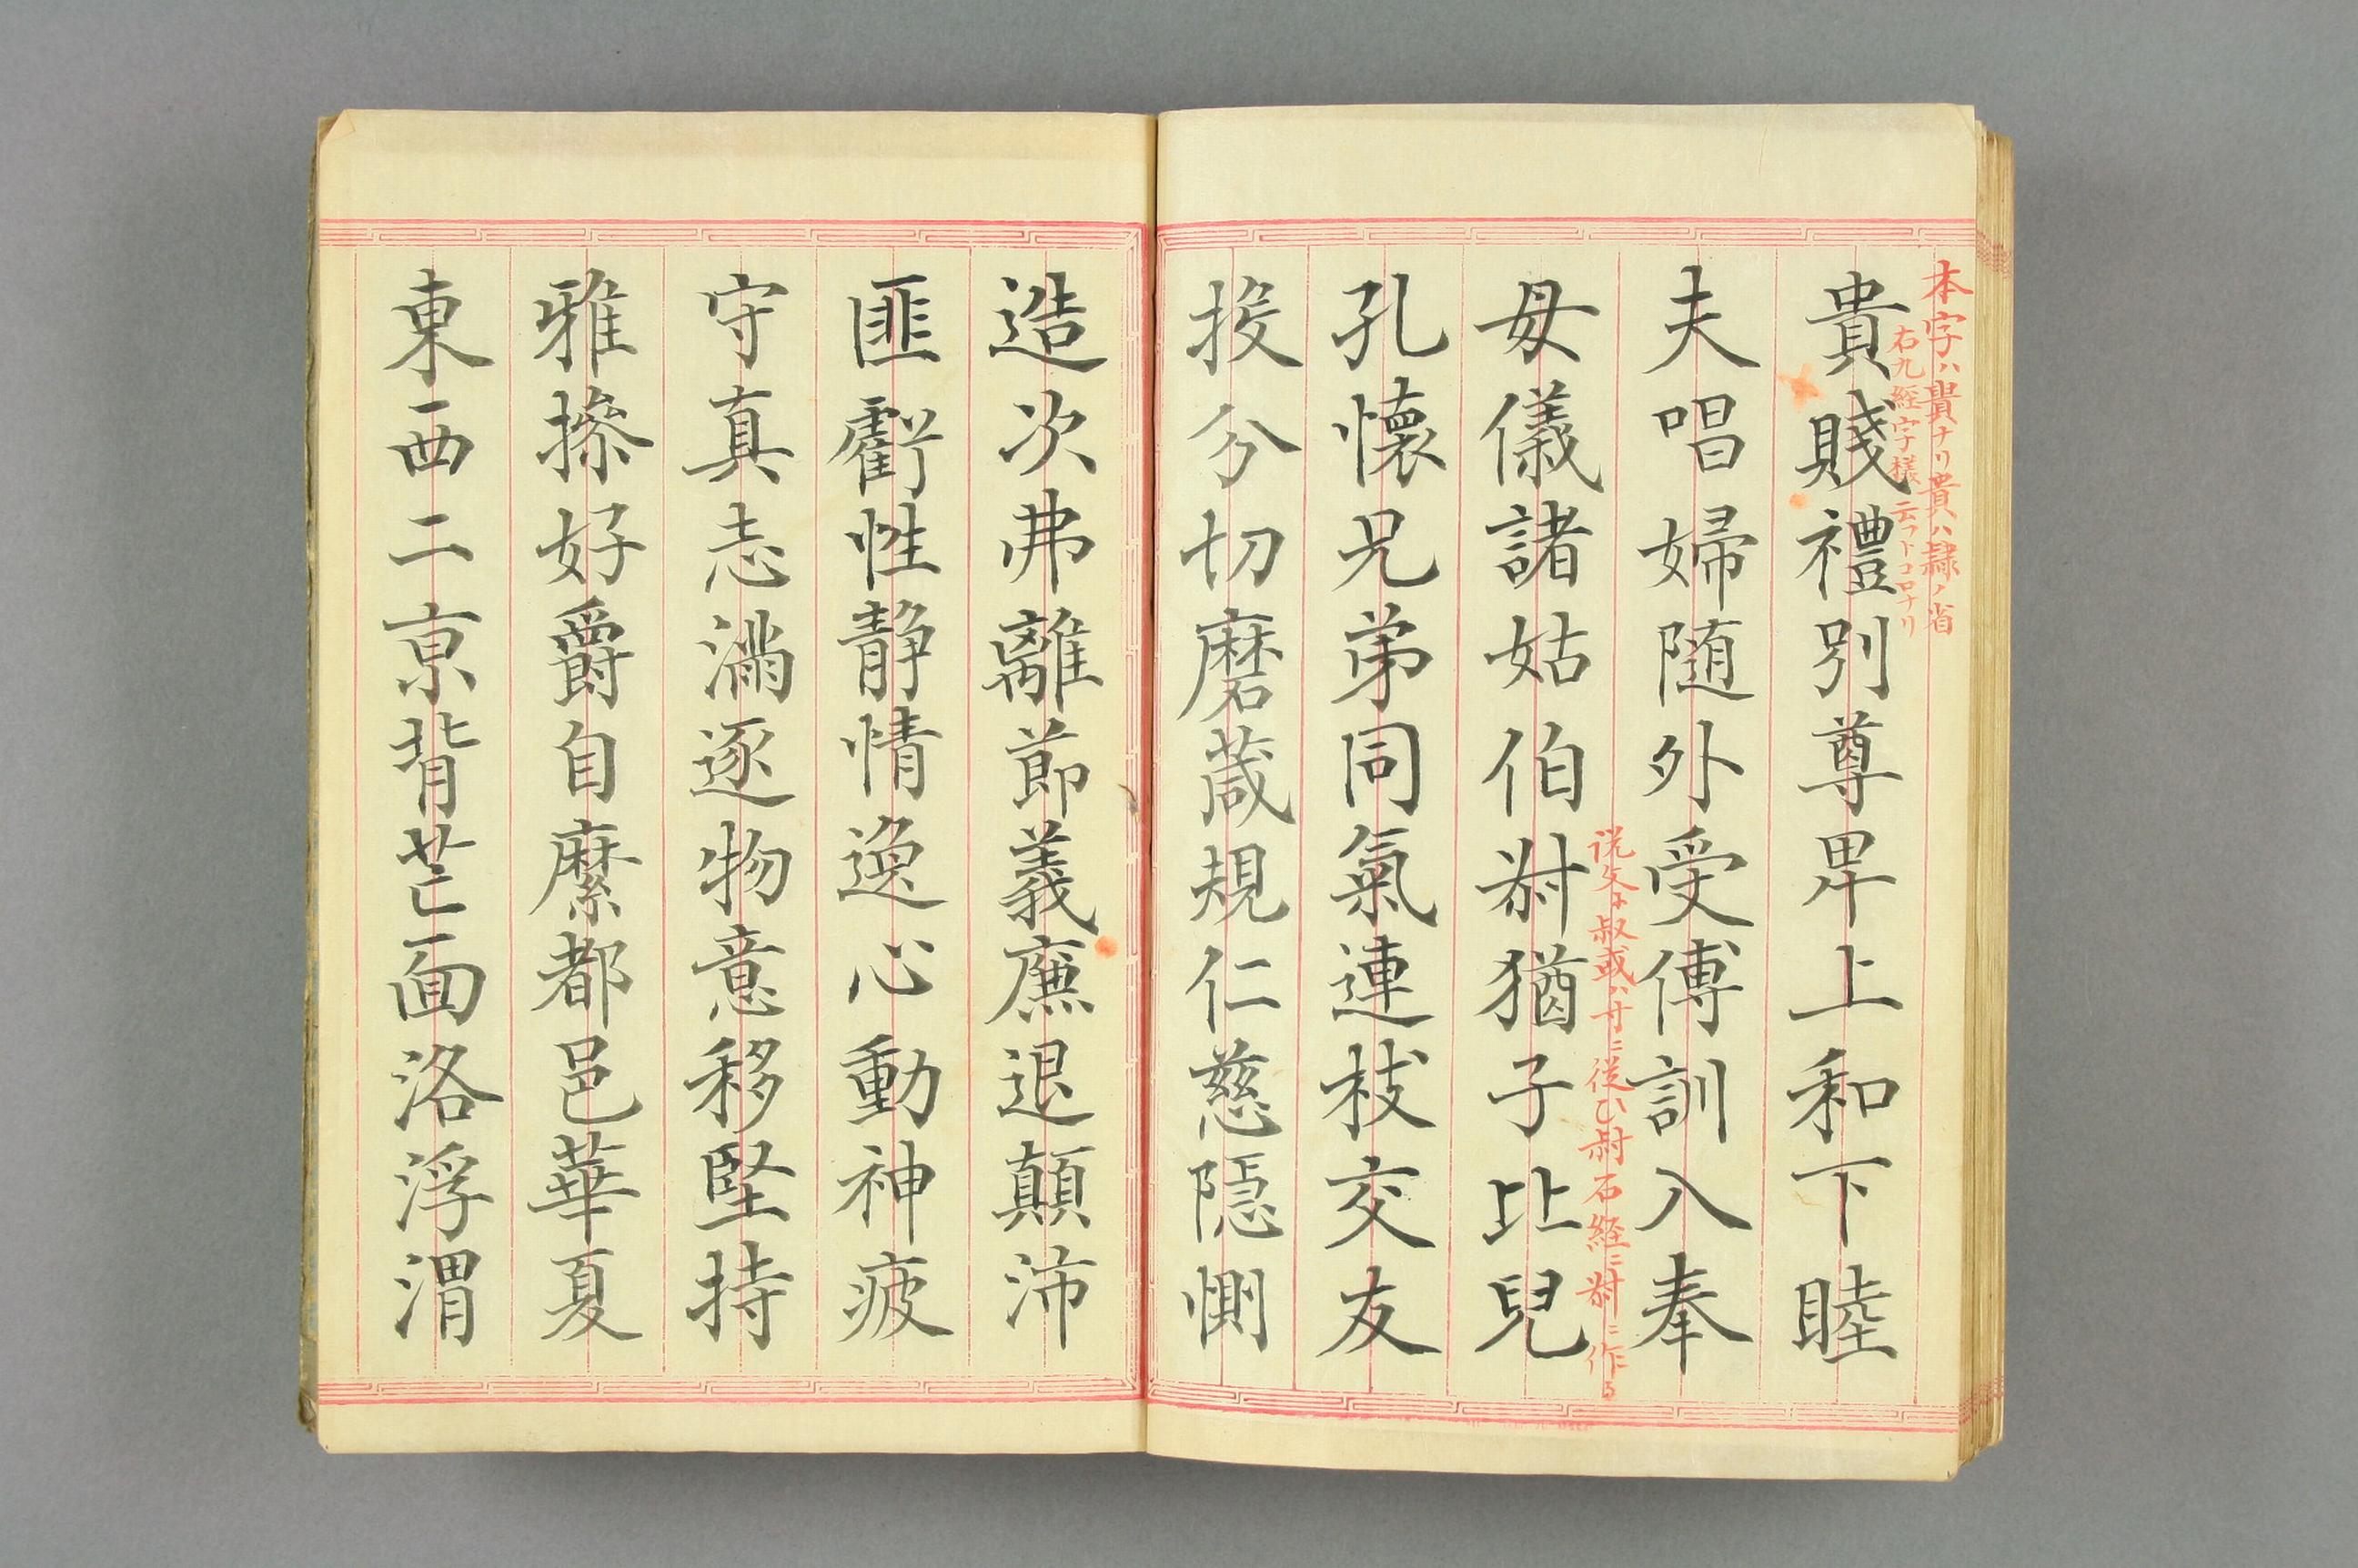 本字ハ貴ナリ貴ハ隷ノ省
右九経字様云フトコロナリ
貴賤禮別尊卑上和下睦
夫唱婦随外受傅訓入奉
説文ニ叔或ハ寸ニ従ひ尌石経ニ尌ニ作る
母儀諸姑伯尌猶子比兒
孔懷兄弟同氣連枝交友
投分切磨葴規仁慈隠惻
造次弗離節義廉退顛沛
匪虧性静情逸心動神疲
守真志滿逐物意移堅持
雅操好爵自縻都邑華夏
東西二京背芒面洛浮渭